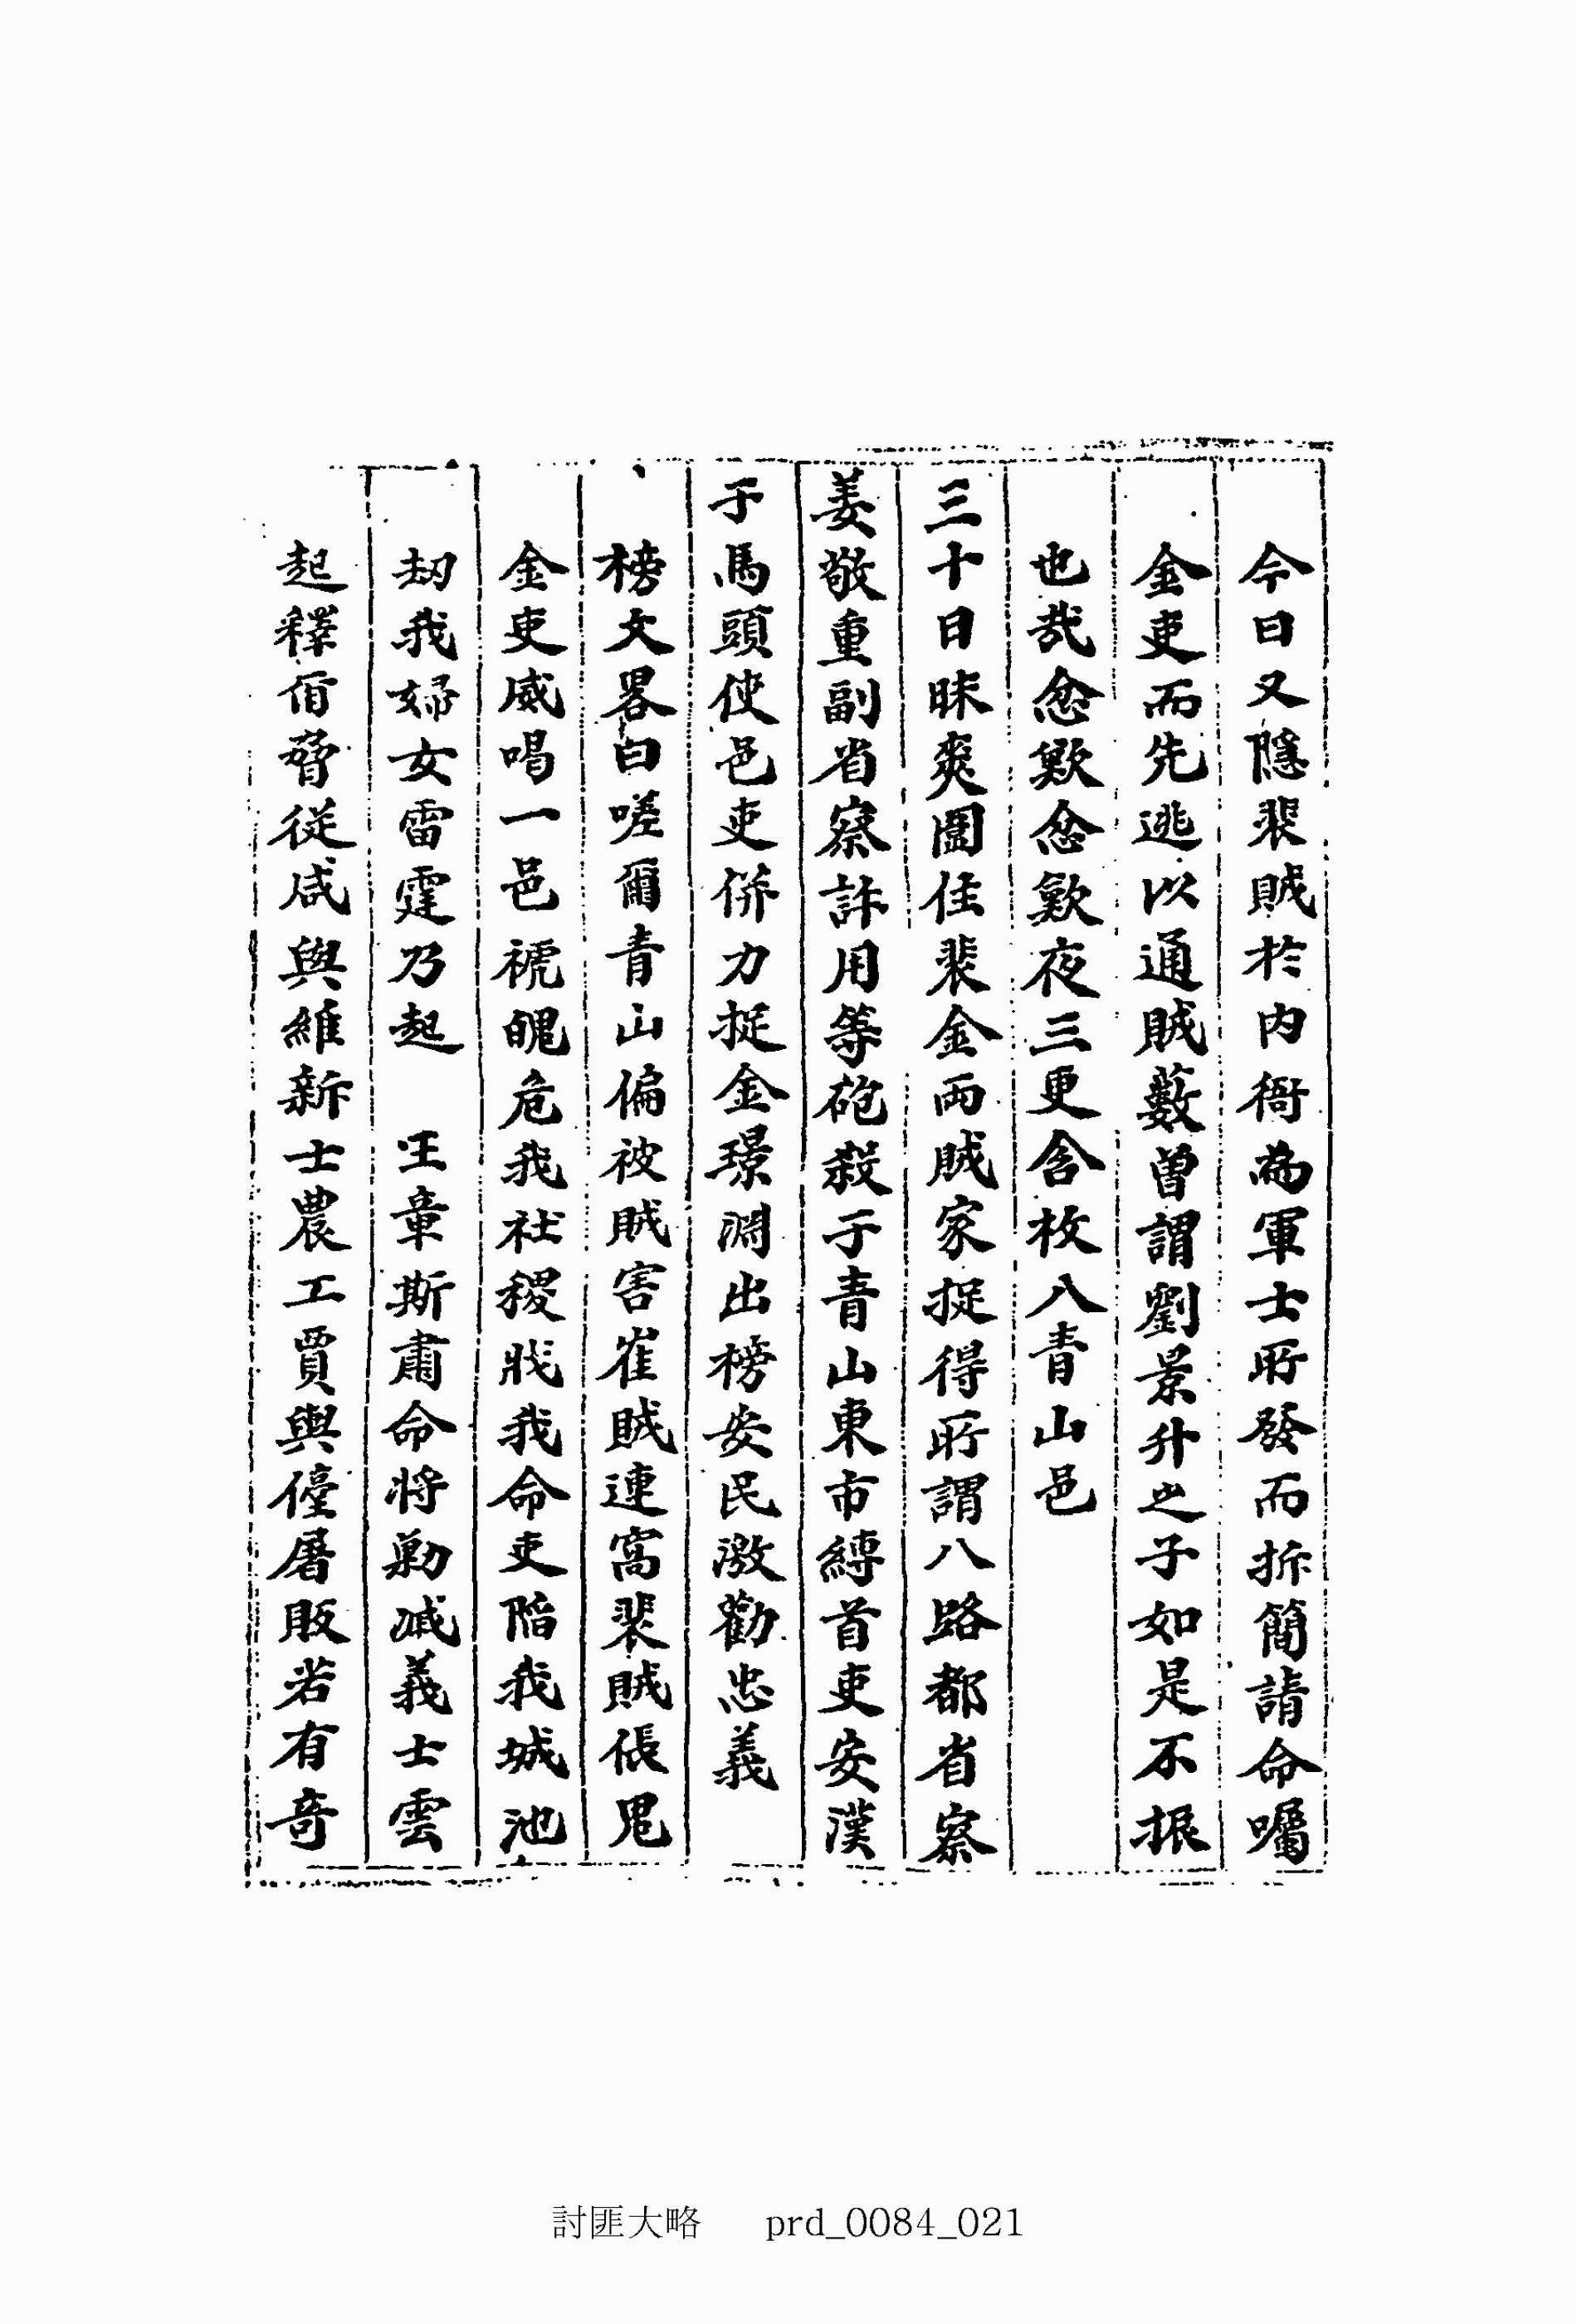 今日又隱裴賊於内衙為軍士所發而拆簡請命囑
金吏而先逃以通賊藪曾謂劉景升之子如是不振
也哉忿歎忿歎夜三更含枚入青山邑
三十日昧爽圍住裴金両賊家捉得所謂八路都省察
姜敬重副省察許用等砲殺于青山東市縳首吏安漢
于馬頭使邑吏併力捉金璟淵出榜安民激勸忠義
榜文畧曰嗟爾青山偏被賊害崔賊連窩裴賊倀鬼
金吏威喝一邑褫魄危我社稷戕我命吏陷我城池
刼我婦女雷霆乃起　王章斯肅命將勦滅義士雲
起釋甭脅從咸與維新士農工賈輿儓屠販若有奇
討匪大略　prd_0084_021